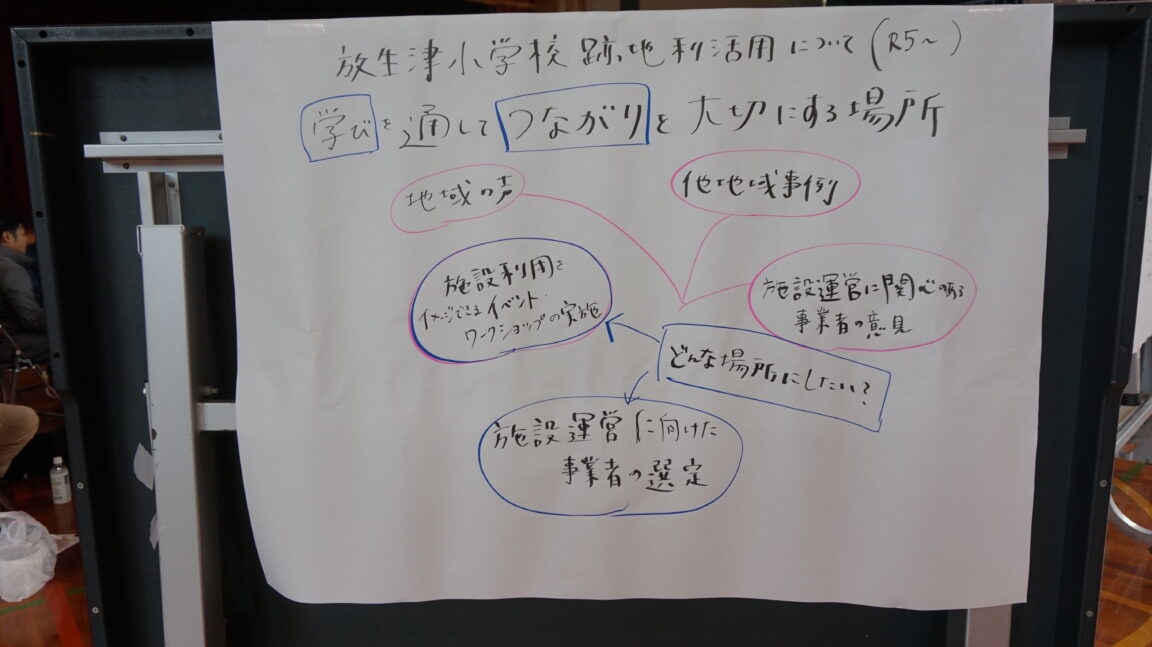 放生津小学校跡地利活用について(R5~)
学びを通してつながりを大切にする場所
地域の声
他地域事例
施設利用を
イメージできるイベント・
ワークショップの実施
施設運営に関心のある
事業者の意見
どんな場所にしたい?
施設運営に向けた
事業者の選定